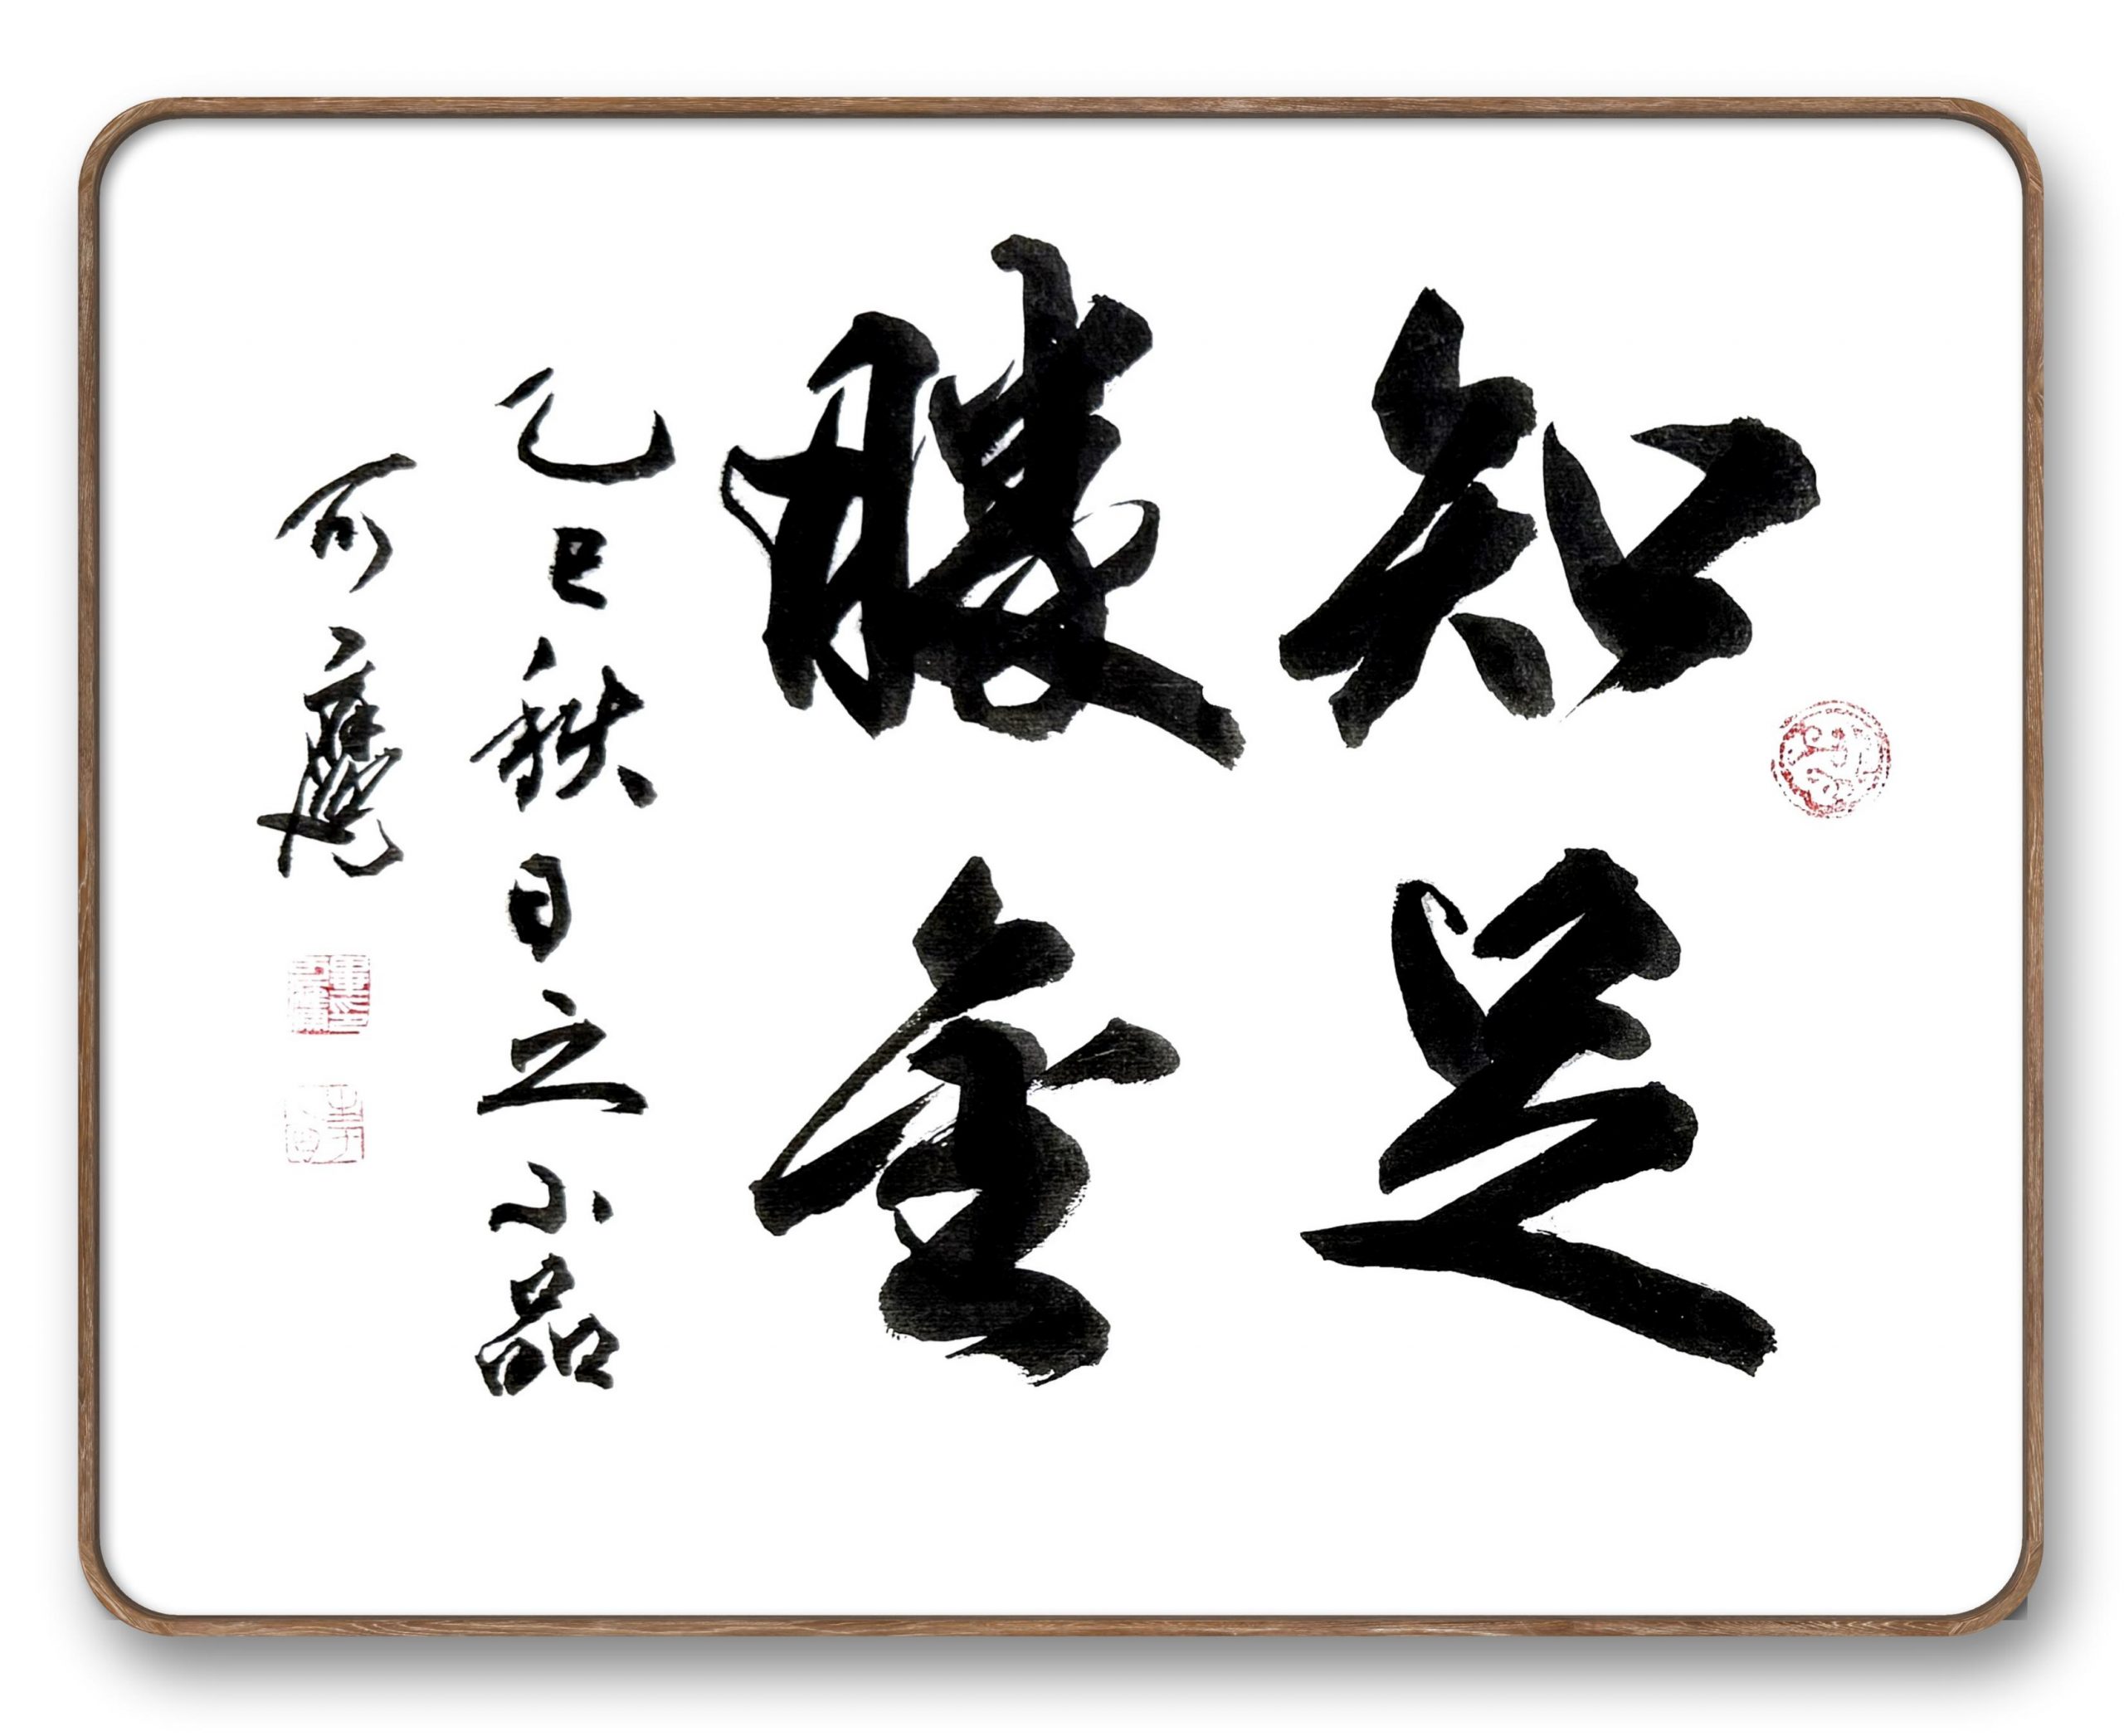 知足
勝金
乙巳秋日之小品